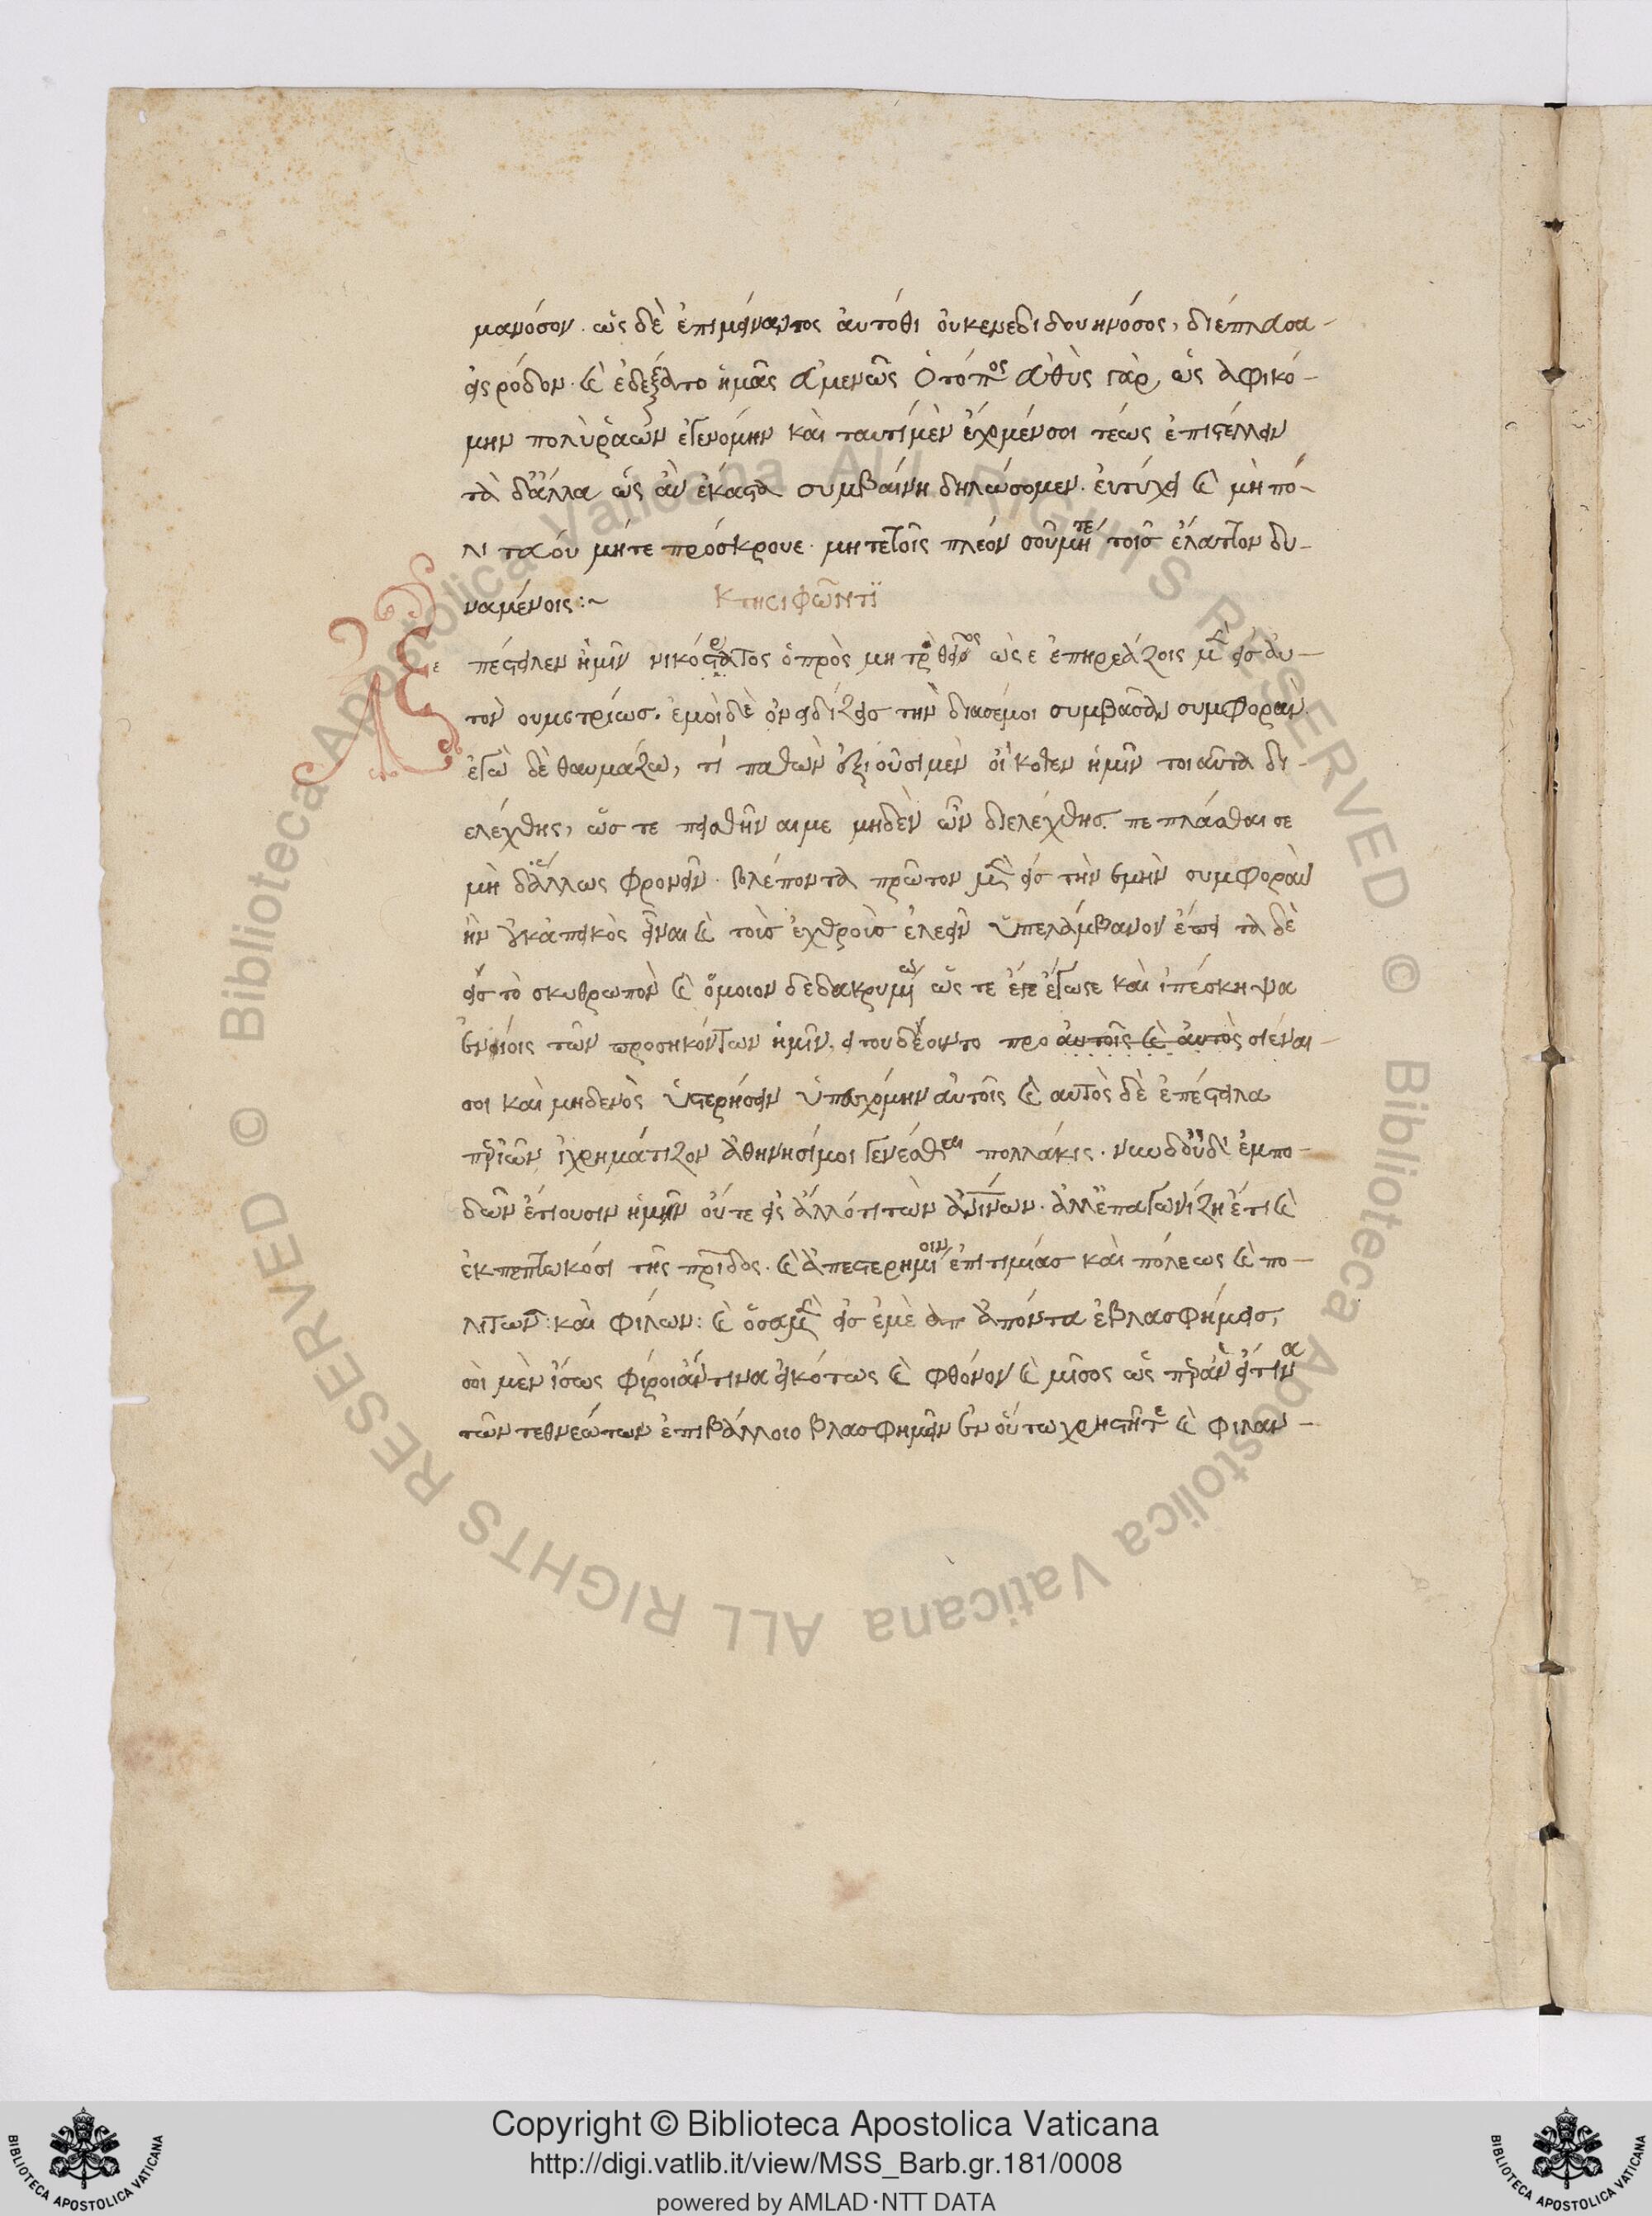 μανόσον. ὡς δὲ ἐπιμείναντος ἀυτόθι ὀυκενεδίδου ηνόσος, διέπλασα-
εἰς ρόδον. καὶ ἐδεξατο ἡμᾶς ἀμενῶς ὁ τόπος ἀυθὺς γὰρ, ὡς ἀφικό-
μην πολὺ ῥάων ἐγενόμην καὶ ταυτὶ μὲν εἰχομέν σοι τέως ἐπιστέλλειν
τὰ δ' ἄλλα ὡς ἂν ἕκαστα συμβαίνη δηλώσομεν. ἐυτύχει καὶ μὴ πό-
λι ταόυ μήτε πρόσκρουε. μητετοῖς πλέον σοῦ μήτε τοῖσ ἐλαττον δυ-
ναμένοις:~ Κτησιφῶντϊ
Ἐπέστειλεν ἡμῖν νικόστρατος ὁ πρὸς μητρὸς θεῖος ὡς ἐπηρεάζοις μὲν εἰσ ἀυ-
τὸν ουμετρίωσ. ἐμοὶ δὲ ὀνειδίζεισ τὴν διασέμοι συμβᾶσαν συμφοραν.
ἐγὼ δὲ θαυμάζω, τί παθὼν ἐξιοῦσι μὲν οἴκοθεν ἡμῖν τοιαῦτα δι-
ελέχθης, ὥσ τε πεισθῆν αιμε μηδὲν ὧν διελέχθησ. πεπλάσθαι σε
μὴ δ' ἄλλως φρονεῖν. βλέποντα πρῶτον μὲν εἰσ τὴν ἐμὴν συμφορὰν
ἣν ἐπιεικὸς εἶναι καὶ τοῖσ ἐχθροῖσ ἐλεεῖν ὑπελάμβανον ἔπειτα δὲ
εἰσ τὸ σκυθρωπὸν καὶ ὅμοιον δεδακρυμένω ὥς τε ἔγωγε καὶ ἐπέσκηψα
ἐνίοις τῶν προσηκόντων ἡμῖν. εἴτου δέοιντο προ αυτοῖς καὶ ἀυτὸς σιέναι-
σοι καὶ μηδενὸς ὑστερήσειν ὑπεσχόμην ἀυτοῖς καὶ αυτὸς δὲ ἐπέστειλα
περὶ ὧν ἐχρημάτιζον ἀθήνησί μοι γενέσθαι πολλάκις. νυνδ' οὐδ' ἐμπο-
δὼν ἔτι ουσιν ἡμῖν οὔτε εἰς ἄλλό τι τῶν ἀνθρωπίνων. ἀλλ' ἐπαγωνίζη ἔτι καὶ
ἐκπεπτωκόσι τῆς πατρίδος. καὶ ἀπεστερημένοιν ἐπιτιμίασ καὶ πόλεως καὶ πο-
λιτῶν: καὶ φίλων: καὶ ὅσα μὲν εἰσ ἐμὲ ἀπ ἀπόντα ἐβλασφήμεισ,
σοὶ μὲν ἴσως φέροι ἄν τινα εἰκότως καὶ φθόνον καὶ μῖσος ὡς περ ἂν εἴ τινα
τῶν τεθνεώτων ἐπιβάλλοιο βλασφημεῖν ἐν οὕτω χρηστῆ τε καὶ φιλαν-
Copyright © Biblioteca Apostolica Vaticana
http://digi.vatlib.it/view/MSS_Barb.gr.181/0008
powered by AMLAD·NTT DATA